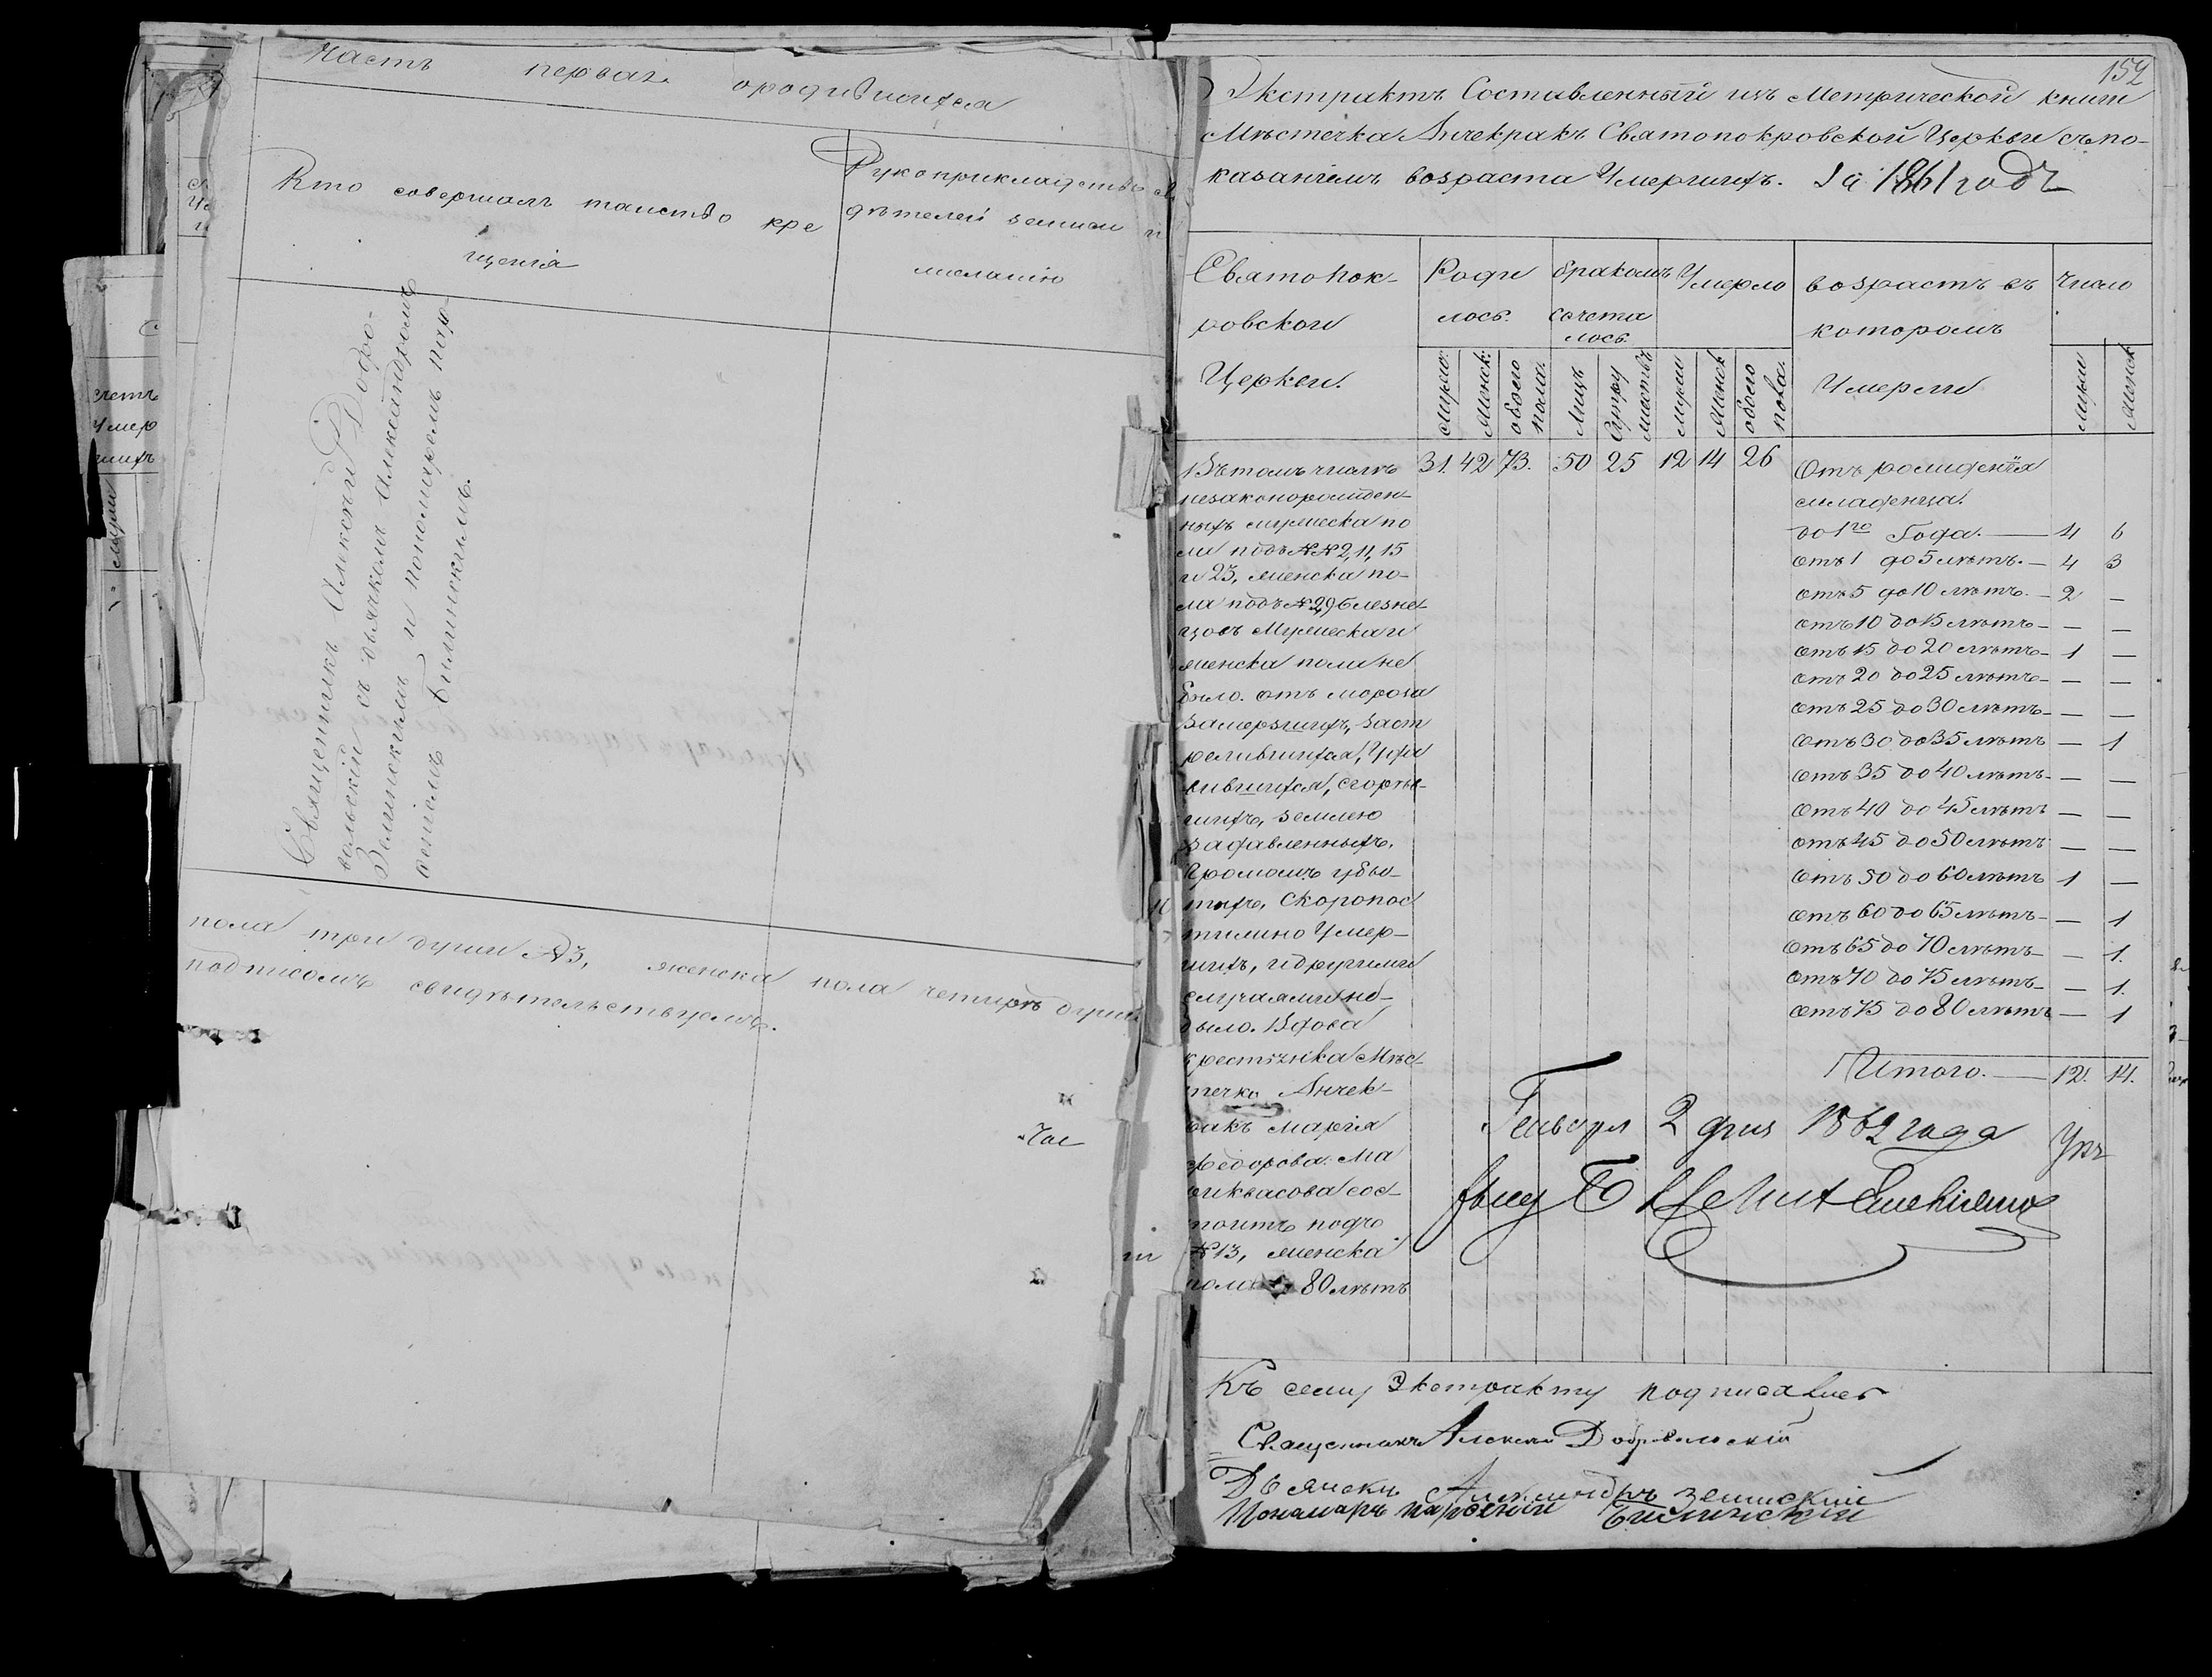 Часть первая о родившихся
Кто совершалъ таинство кре
щенія
Рукоприкладство сви
дѣтелей записи
желанію
Священникъ Алексѣй Добро-
вольскій съ дьячкомъ Александромъ
Зелинскимъ и пономаремъ Пар-
феніемъ Билинскимъ.
пола три души №3, женска пола четырѣ души
подписомъ свидѣтельствуемъ.
152
Экстрактъ Составленный изъ Метрической книги
Мѣстечка Анчекракъ Святопокровской Церкви съ по-
казаніемъ возраста Умершихъ. За 1861 годъ
Святопок-
ровской
Церкви.
Роди
лось.
бракомъ
сочета
лось.
Умерло
возрастъ въ
которомъ
Умерли
Число
мужс.
женск.
обоего
пола.
Лицъ
Супру
жествъ
мужи
женск
обоего
пола.
мужи
женск
31. 42 73. 50 25 12 14 26
Въ томъ числѣ
незаконорожден-
ныхъ мужеска по
ла подъ №№ 2, 11, 15
и 23, женска по-
ла подъ № 29 близне-
цовъ Мужеска и
женска пола не
было. отъ мороза
Замерзшихъ, заст
релившихся, Уда
вившихся, сгорѣв-
шихъ, землею
задавленныхъ,
Громомъ убы-
тыхъ, Скоропос
тижно Умер-
шихъ, и другими
случаями не-
было. Вдова
крестянка Мѣс-
течка Анчек-
ракъ Марія
Федорова
сос-
тоитъ подъ
№ 13, женска
пола 80 лѣтъ
Отъ рожденія
младенца.
до 1го Года. — 4 6
отъ 1 до 5 лѣтъ. — 4 3
отъ 5 до 10 лѣтъ. — 2 —
отъ 10 до 15 лѣтъ — — —
отъ 15 до 20 лѣтъ — 1 —
отъ 20 до 25 лѣтъ — — —
отъ 25 до 30 лѣтъ — — —
отъ 30 до 35 лѣтъ — 1
отъ 35 до 40 лѣтъ — — —
отъ 40 до 45 лѣтъ — —
отъ 45 до 50 лѣтъ — —
отъ 50 до 60 лѣтъ 1 —
отъ 60 до 65 лѣтъ — — 1
отъ 65 до 70 лѣтъ — — 1.
отъ 70 до 75 лѣтъ — — 1.
отъ 75 до 80 лѣтъ — 1
Итого. — 12. 14.
Генваря 2 дня 1862 года
Къ сему Экстракту подписались
Священникъ Алексѣй Добровольскій
Дьячекъ Александръ Зелинскій
Пономарь Парфеній Билинскій